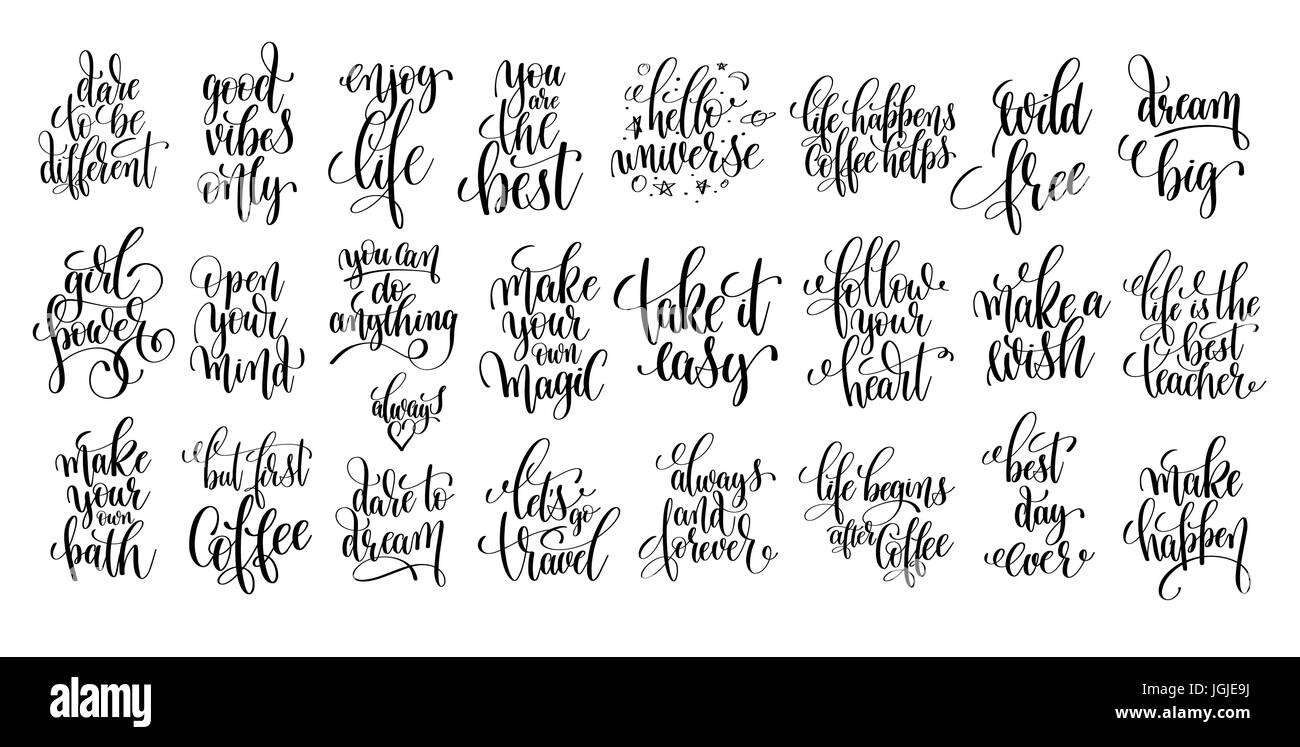 dare
to be
different
good
vibes
only
enjoy
life
you
are
the
best
hello
universe
life happens
coffee helps
wild
free
dream
big
girl
power
open
your
mind
you can
do
anything
always
make
your
own
magic
take it
easy
follow
your
heart
make a
wish
life is the
best
teacher
make
your
own
path
but first
Coffee
dare to
dream
let's
go
travel
always
and
forever
life begins
after Coffee
best
day
ever
make
happen
a alamy stock photo
alamy
Image ID: JGJE9J
www.alamy.com